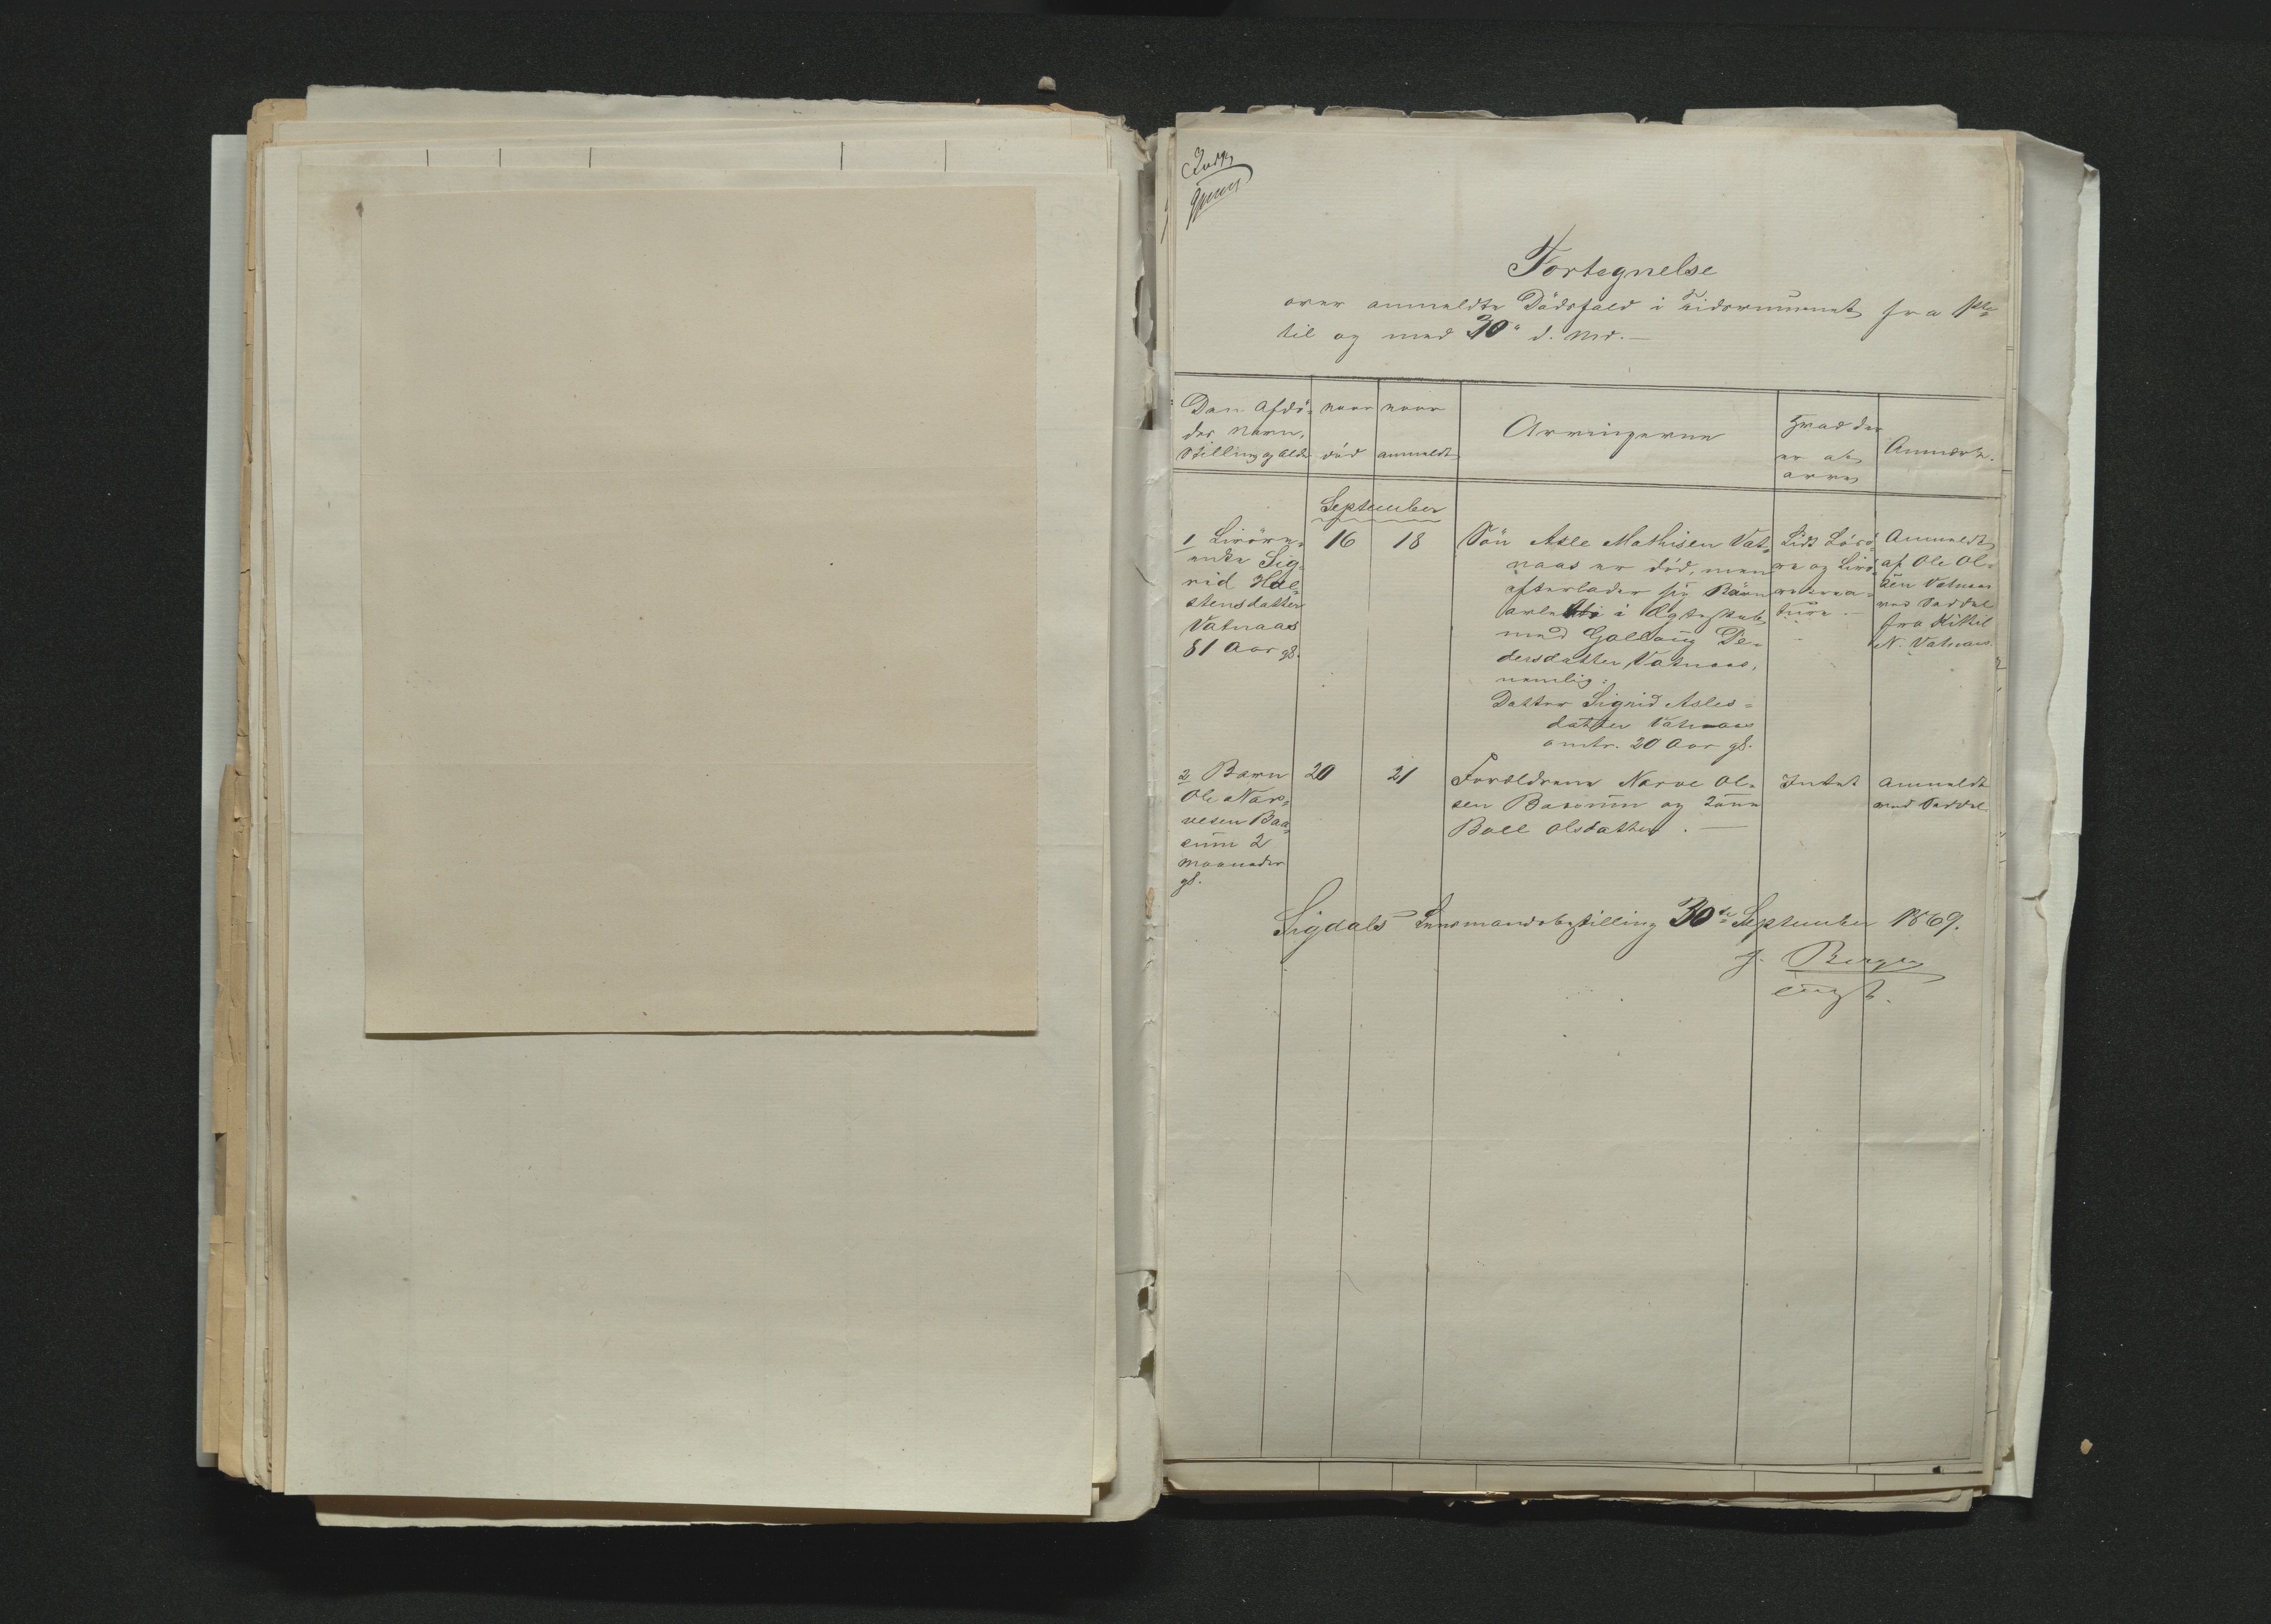 Fortegnelse
over anmeldte Dödsfald i Tidsrummet fra 1ste
til og med 30te d. Md.
Den Afdö-
des Navn,
Stilling og Alder
naar
död
naar
anmeldt
Arvingerne
Hvad der
er at
arve
Anmærk.
September
1 Livöre-
enke Sig-
rid Hal-
stensdatter
Vatnaas
81 Aar gl.
16
18
Sön Asle Mathisen Vat-
naas er död, men
efterlader sig Börn
avlede i Ægteskab
med Gollaug Pe-
dersdatter Vatnaas,
nemlig:
Datter Sigrid Asles-
datter Vatnaas
omtr. 20 Aar gl.
Lidt Lösö-
re og Livö-
rekrea-
ture.
Anmeldt
af Ole Ol-
sen Vatnaas
med Seddel
fra Kittil
N. Vatnaas.
2 Barn
Ole Nar-
vesen Baa-
sum 2
Maaneder
gl.
20
21
Forældrene Narve Ol-
sen Baasum og Kone
Boel Olsdatter.
Intet
Anmeldt
med Seddel
Sigdals Lensmandsbestilling 30te September 1869.
Berger